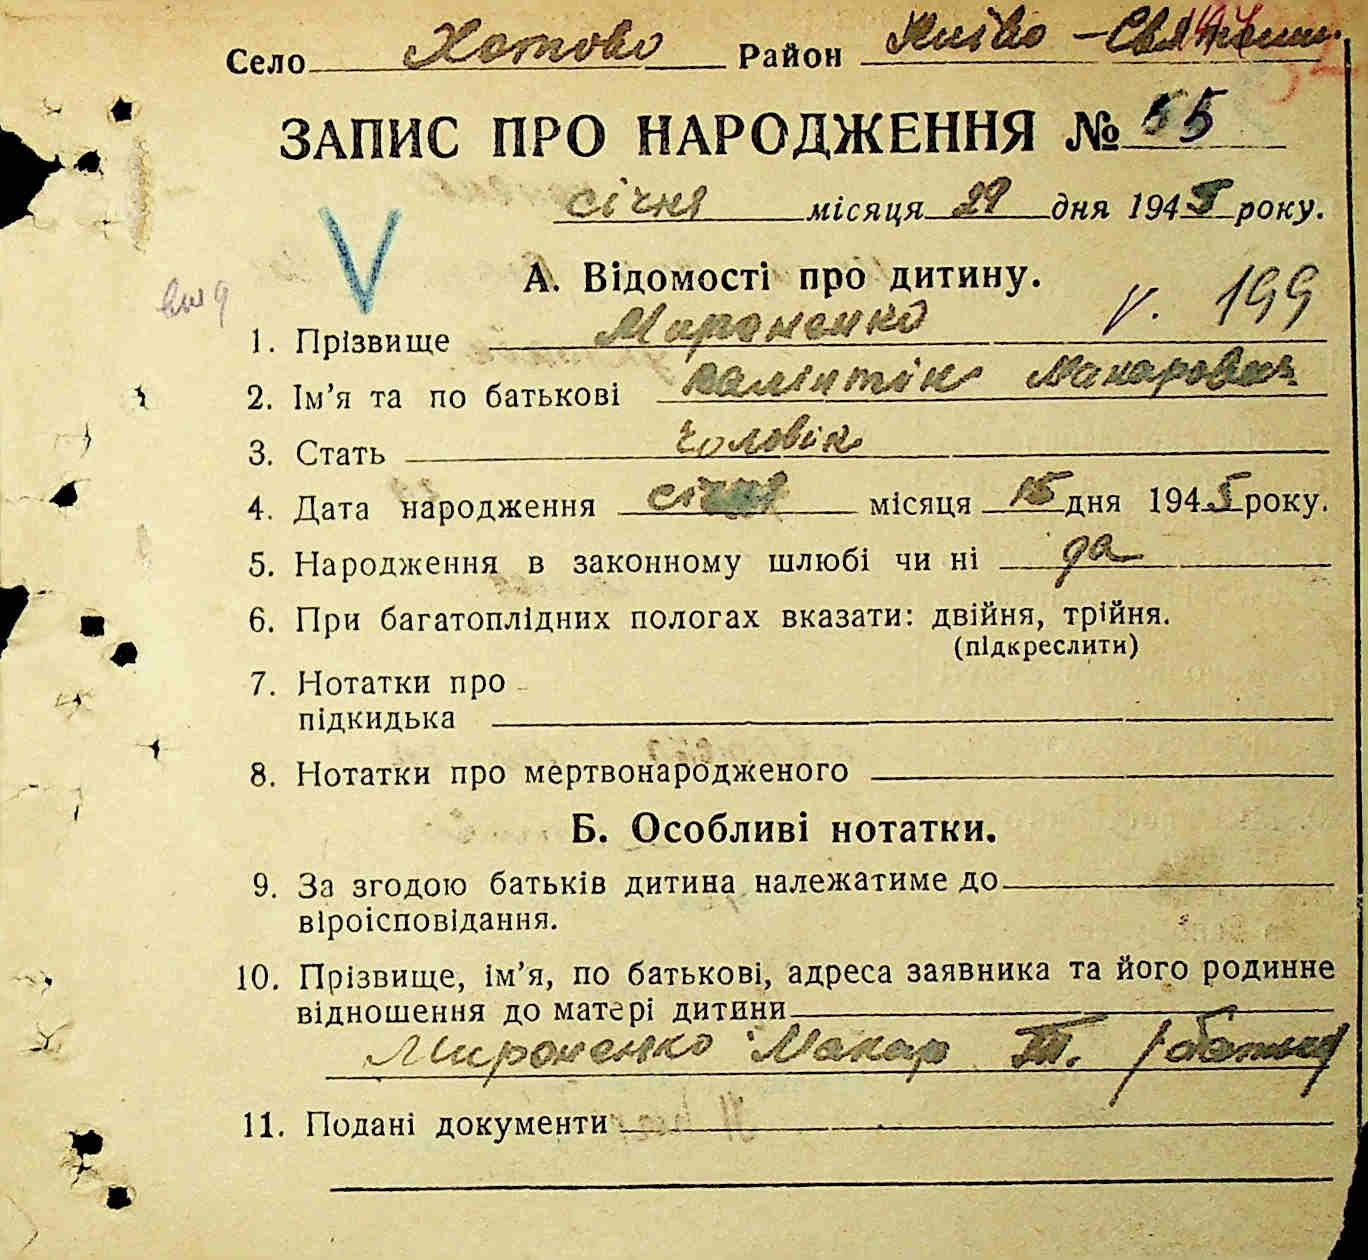 Село Хотово Район Київо-Святошин.
ЗАПИС ПРО НАРОДЖЕННЯ № 55
січня місяця 29 дня 1945 року.
А. Відомості про дитину.
v. 199
1. Прізвище Мироненко
2. Ім'я та по батькові Валінтін Макарович
3. Стать Чоловік
4. Дата народження січня місяця 15 дня 1945 року.
5. Народження в законному шлюбі чи ні да
6. При багатоплідних пологах вказати: двійня, трійня.
(підкреслити)
7. Нотатки про
підкидька
8. Нотатки про мертвонародженого
Б. Особливі нотатки.
9. За згодою батьків дитина належатиме до
віроісповідання.
10. Прізвище, ім'я, по батькові, адреса заявника та його родинне
відношення до матері дитини
Мироненко Макар Т. (батько)
11. Подані документи